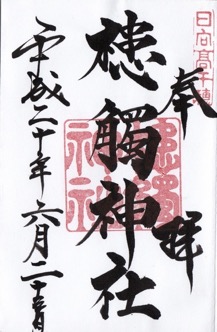 日向高千穂
奉拝
槵觸神社
平成二十年六月二十三日